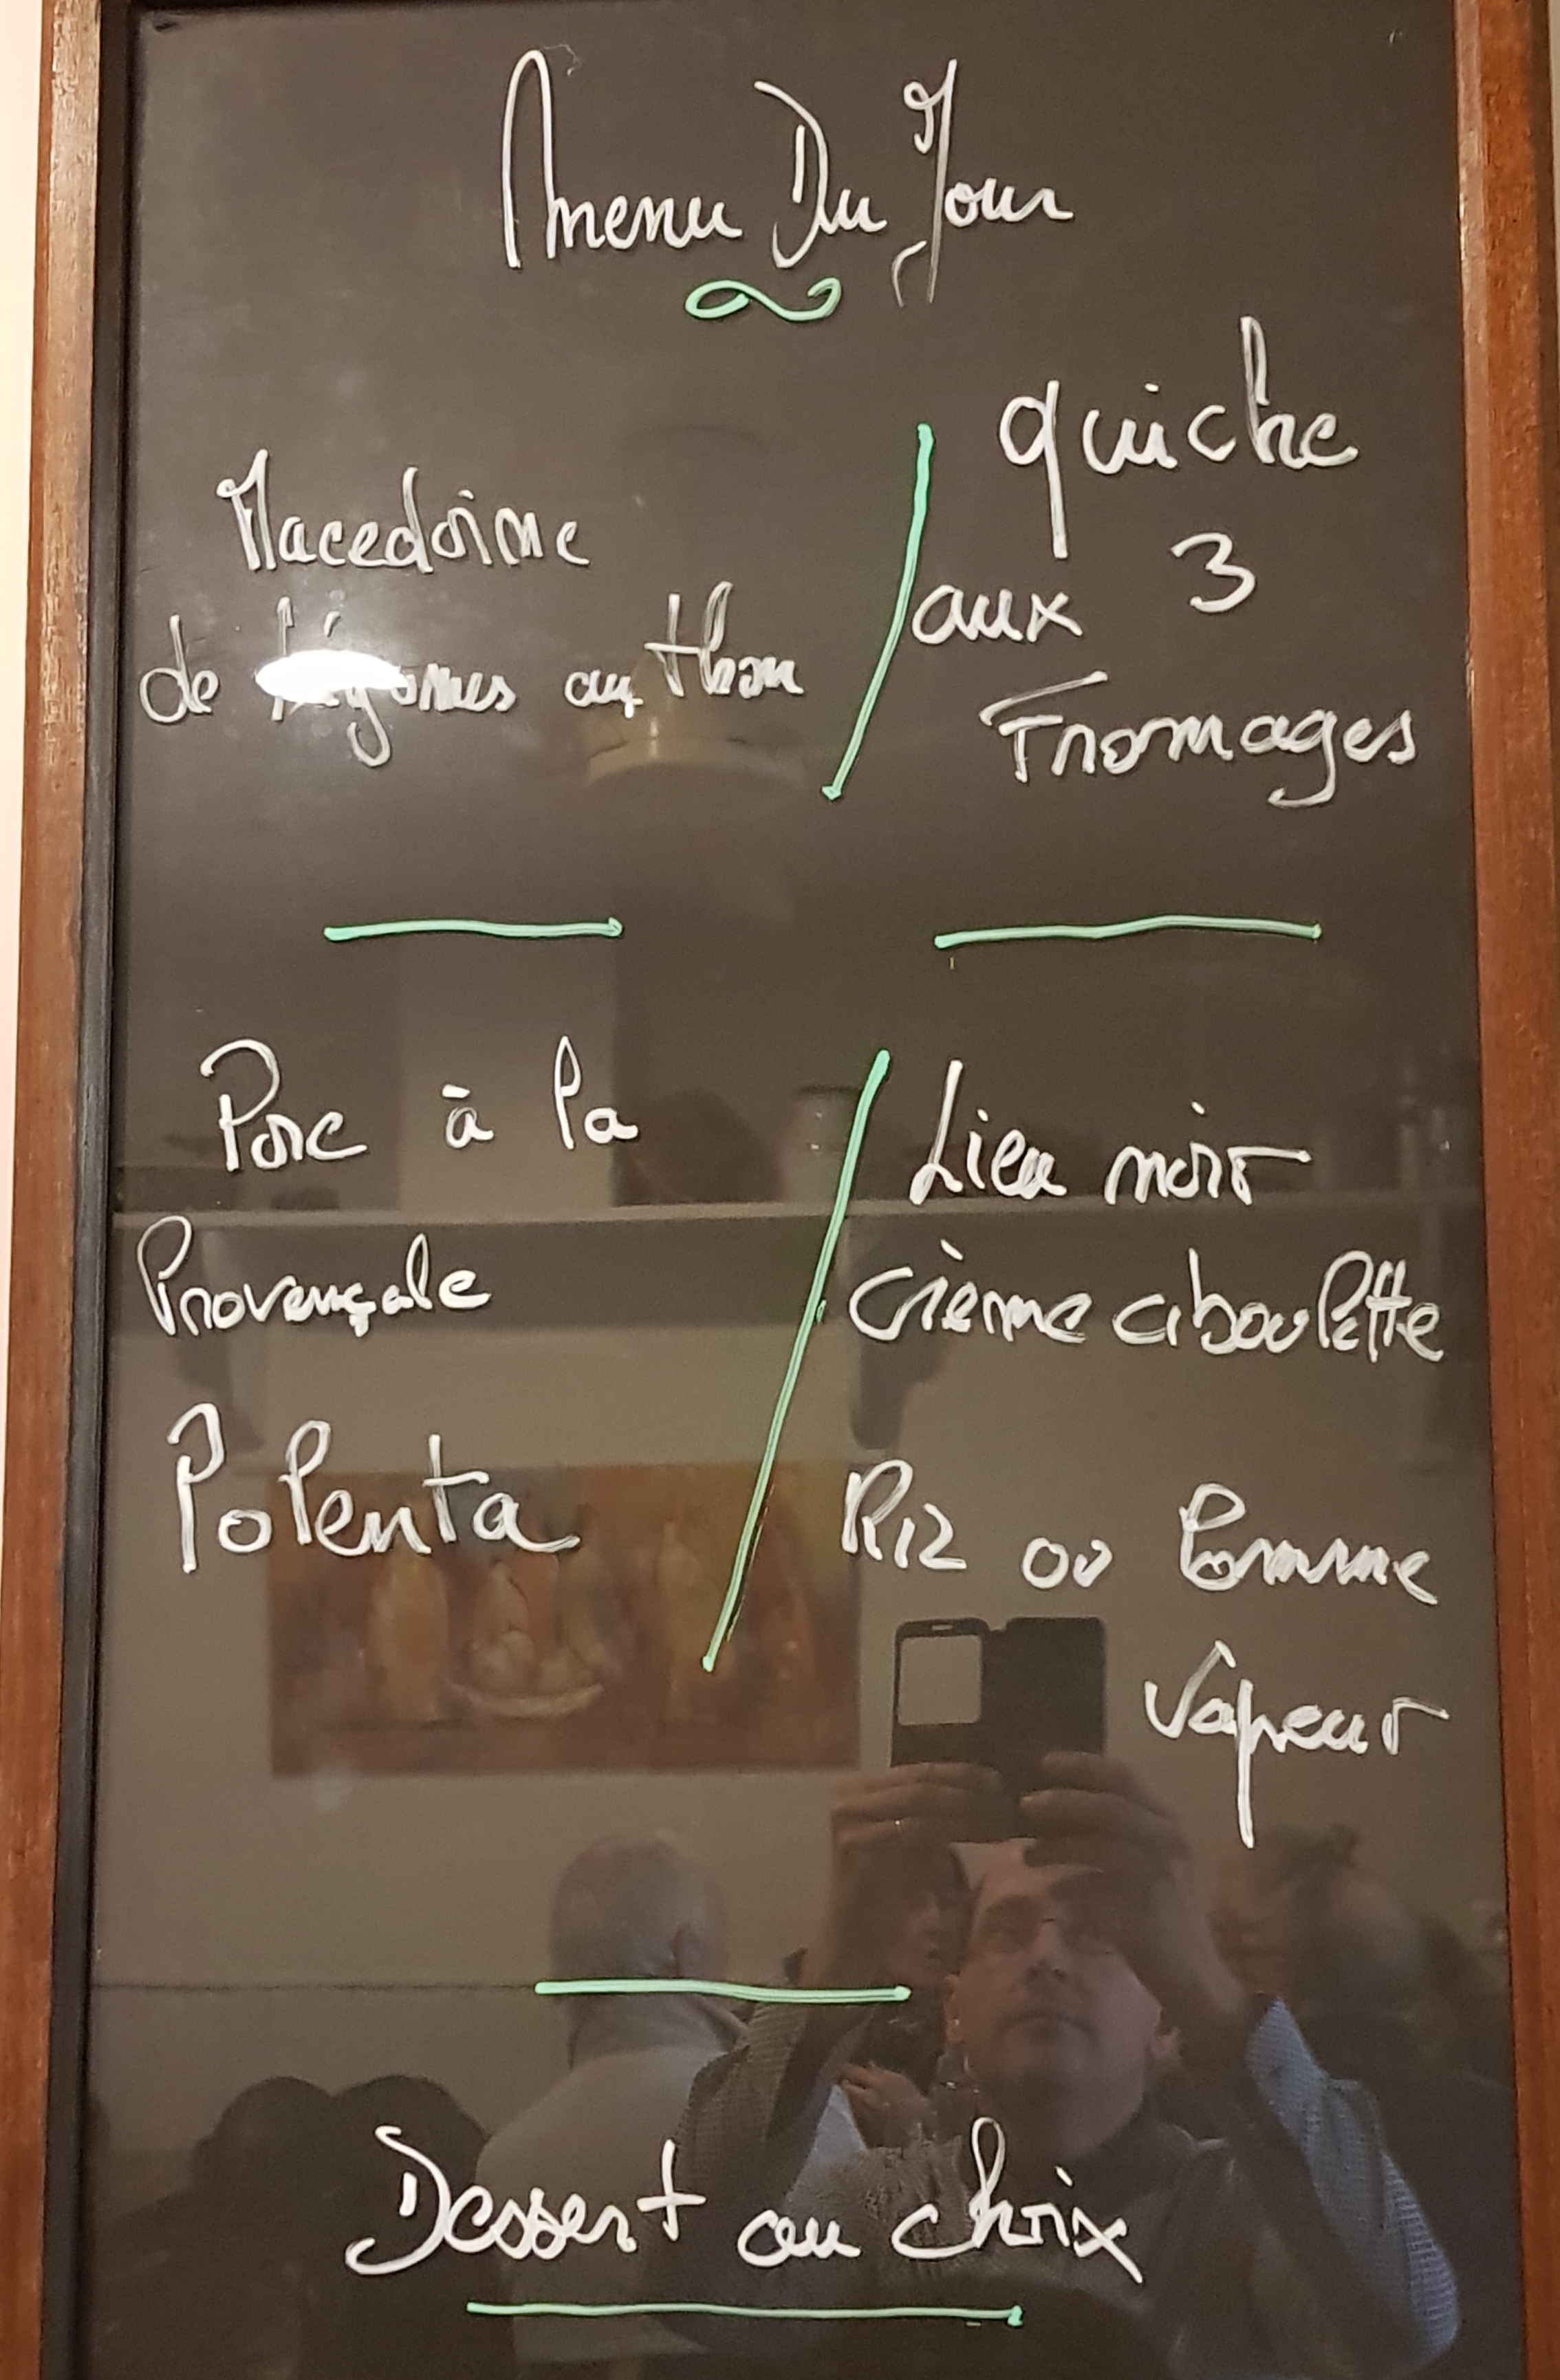 Menu Du Jour
Macedoine
de légumes au thon
quiche
aux 3
Fromages
Porc à la
Provençale
Polenta
Lieu noir
crème ciboulette
Riz ou Pomme
Vapeur
Dessert au choix